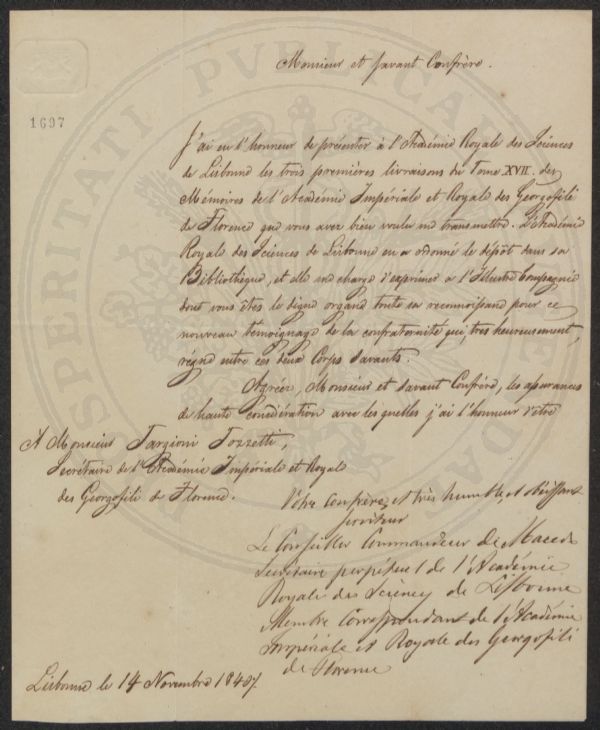 Monsieur et savant Confrère.
1697
PROSPERITATI PVBLICAE
J'ai eu l'honneur de présenter à l'Académie Royale des Sciences
de Lisbonne les trois premières livraisons du Tome XVII. des
Mémoires de l'Académie Impériale et Royale des Georgofili
de Florence que vous avez bien voulu me transmettre. L'Académie
Royale des Sciences de Lisbonne en a ordonné le dépôt dans sa
Bibliothèque, et elle me charge d'exprimer à l'Illustre Compagnie
dont vous êtes le digne organe toute sa reconnoissance pour ce
nouveau témoignage de la confraternité qui, très heureusement,
règne entre ces deux Corps savants.
Agréez, Monsieur et savant Confrère, les assurances
de haute considération avec lesquelles j'ai l'honneur d'être
A Monsieur Targioni Tozzetti,
Secrétaire de l'Académie Impériale et Royale
des Georgofili de Florence.
Vôtre Confrère, et très humble, et obéissant
serviteur
Le Conseiller Commandeur de Macedo
Secrétaire perpétuel de l'Académie
Royale des Sciences de Lisbonne
Membre Correspondant de l'Académie
Impériale et Royale des Georgofili
de Florence
Lisbonne le 14 Novembre